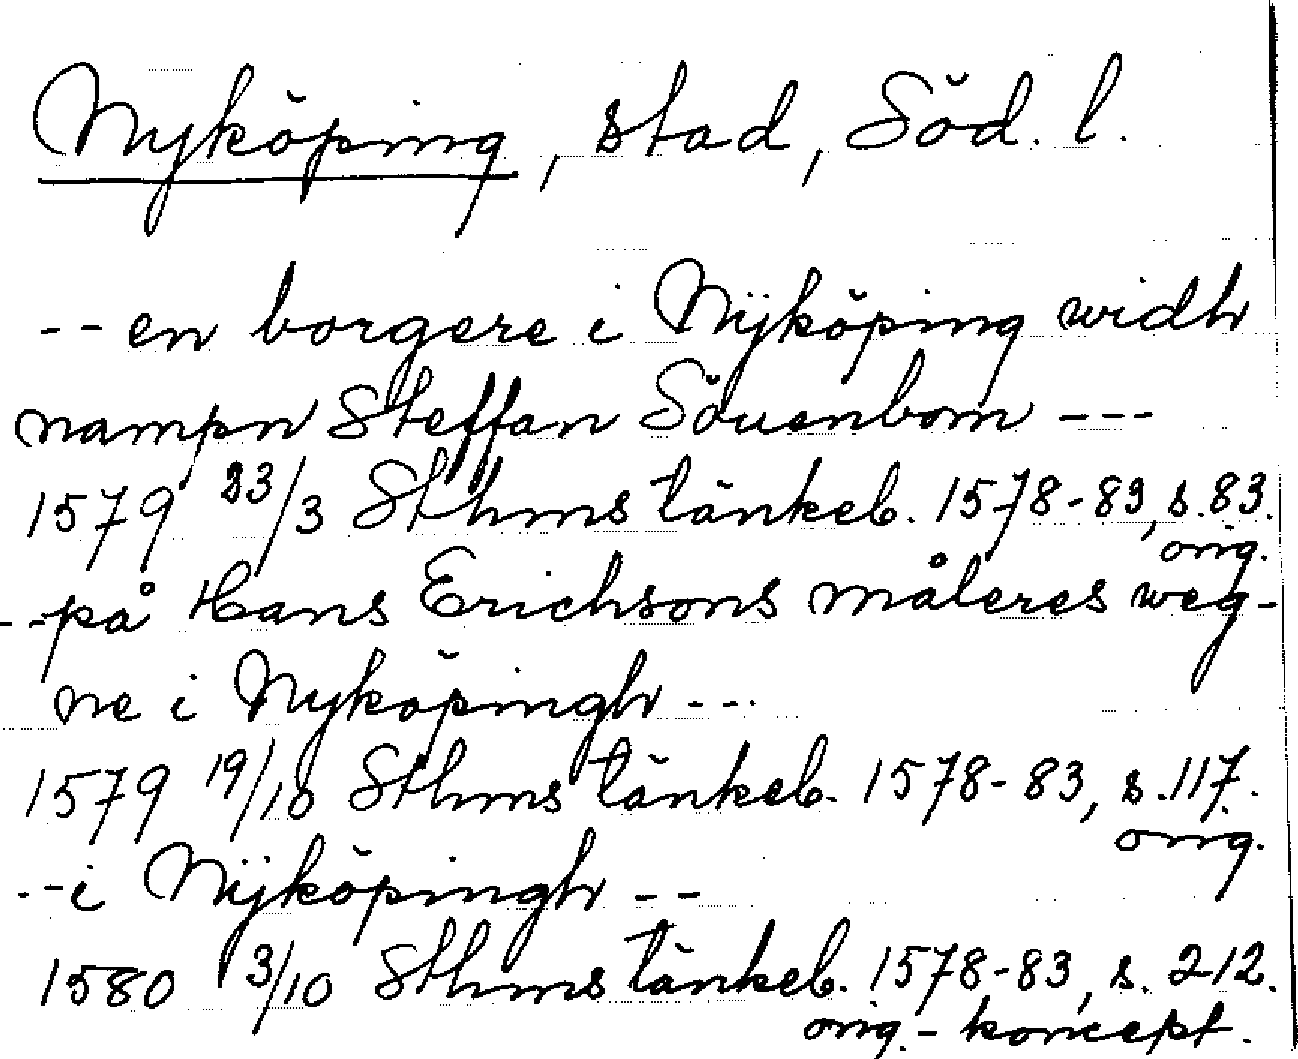 Nyköping, stad, Söd. l.
-- en borgere i Nÿköping widh
nampn Steffan Söuenbom ---
1579 23/3 Sthms tänkeb. 1578-83, s. 83.
orig.
-- på Hans Erichsons måleres weg-
ne i Nyköpingh ---
1579 19/10 Sthms tänkeb. 1578-83, s. 117.
orig.
-- i Nÿköpingh --
1580 3/10 Sthms tänkeb. 1578-83, s. 212.
orig. - koncept.